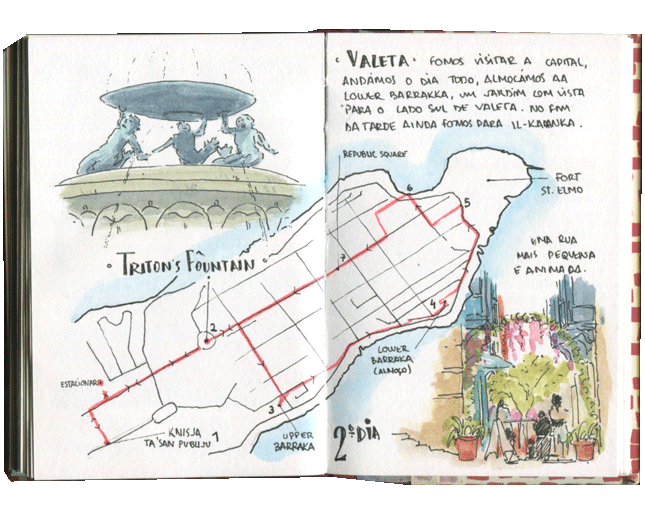 · TRITON'S FOUNTAIN ·
ESTACIONAR
KNISJA
TA'SAN PUBLIJU
1
2
3
UPPER
BARRAKA
· VALETA · FOMOS VISITAR A CAPITAL,
ANDÁMOS O DIA TODO, ALMOÇAMOS AA
LOWER BARRAKKA, UM JARDIM COM VISTA
PARA O LADO SUL DE VALETA. NO FIM
DA TARDE AINDA FOMOS PARA IL-KALANKA.
REPUBLIC SQUARE
6
5
FORT
ST. ELMO
7
4
UMA RUA
MAIS PEQUENA
E ANIMADA.
LOWER
BARRAKA
(ALMOÇO)
2º DIA